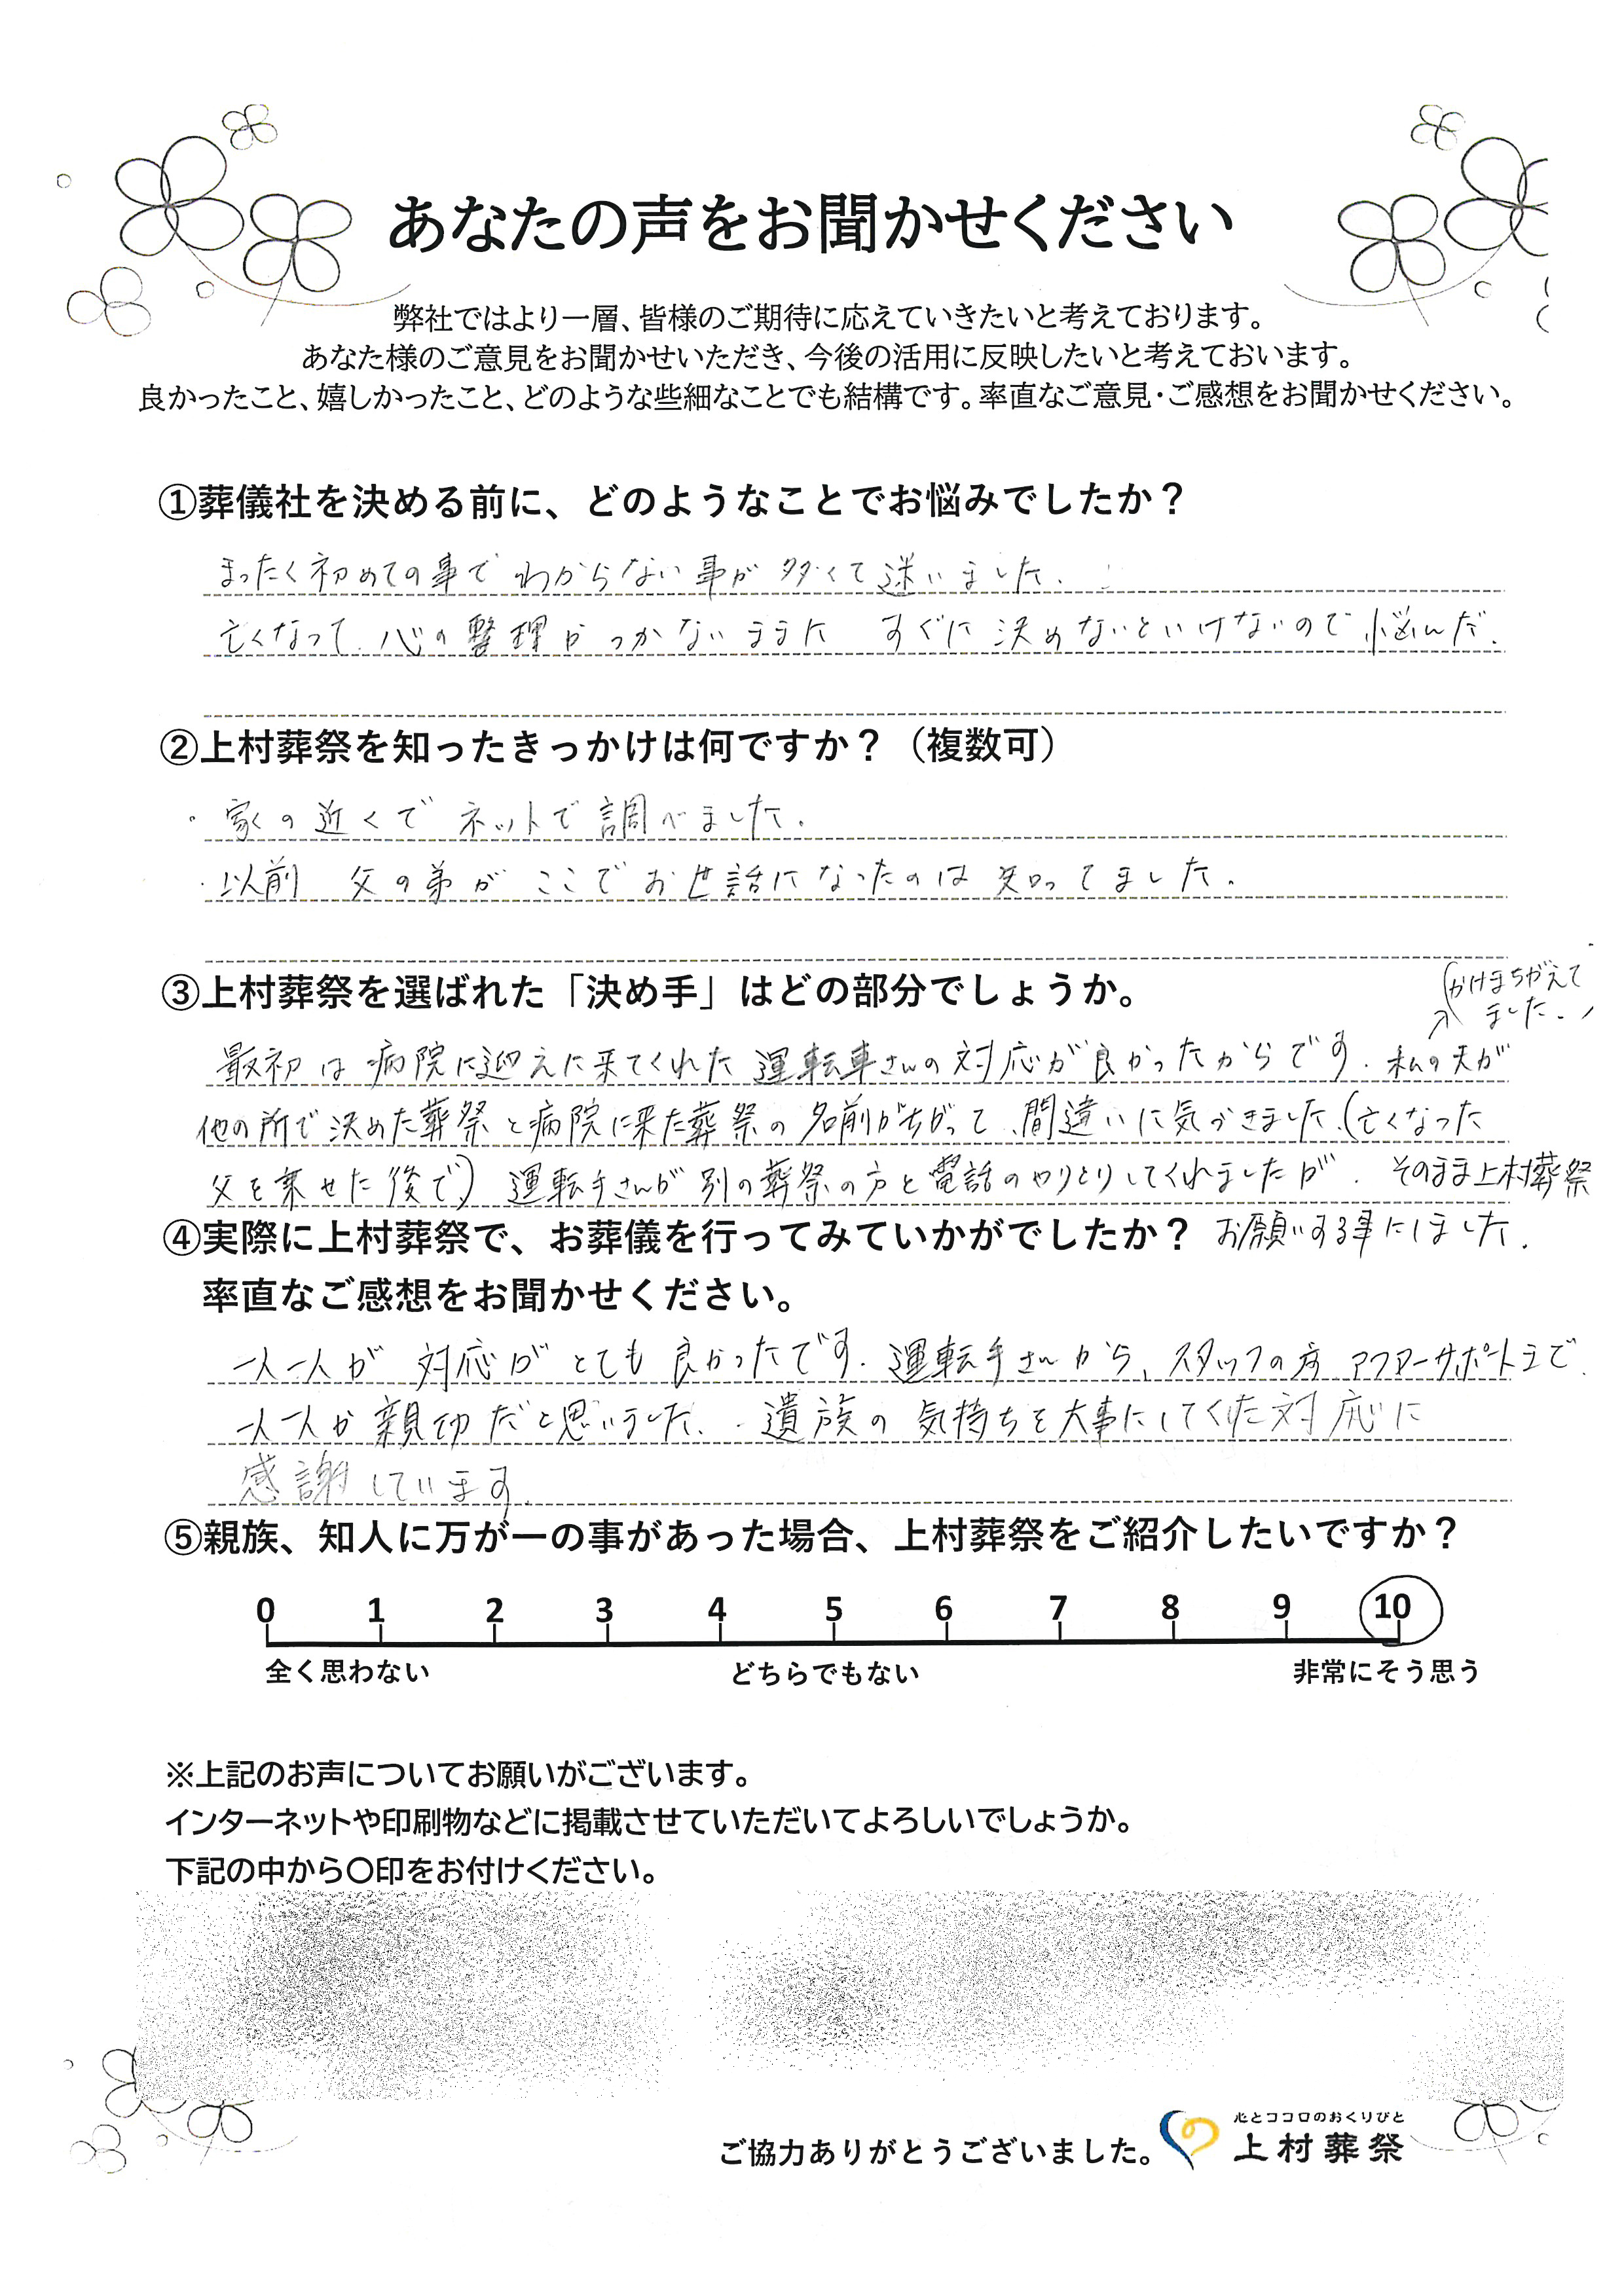 あなたの声をお聞かせください
弊社ではより一層、皆様のご期待に応えていきたいと考えております。
あなた様のご意見をお聞かせいただき、今後の活用に反映したいと考えておいます。
良かったこと、嬉しかったこと、どのような些細なことでも結構です。率直なご意見・ご感想をお聞かせください。
①葬儀社を決める前に、どのようなことでお悩みでしたか？
まったく初めての事でわからない事が多くて迷いました.
亡くなって心の整理がつかないままに すぐに決めないといけないので悩んだ.
②上村葬祭を知ったきっかけは何ですか？（複数可）
・家の近くでネットで調べました.
・以前 父の弟がここでお世話になったのは知ってました.
③上村葬祭を選ばれた「決め手」はどの部分でしょうか。
(かけまちがえて
ました.)
最初は病院に迎えに来てくれた運転車さんの対応が良かったからです. 私の夫が
他の所で決めた葬祭と病院に来た葬祭の名前がちがって、間違いに気がきました.(亡くなった
父を乗せた後で) 運転手さんが別の葬祭の方と電話のやりとりしてくれましたが. そのまま上村葬祭
お願いする事にしました.
④実際に上村葬祭で、お葬儀を行ってみていかがでしたか？
率直なご感想をお聞かせください。
一人一人が 対応がとても良かったです. 運転手さんから、スタッフの方 アフターサポートまで.
一人一人が親切だと思いました. 遺族の気持ちを大事にしてくれた対応に
感謝しています.
⑤親族、知人に万が一の事があった場合、上村葬祭をご紹介したいですか？
0 1 2 3 4 5 6 7 8 9 10
全く思わない どちらでもない 非常にそう思う
※上記のお声についてお願いがございます。
インターネットや印刷物などに掲載させていただいてよろしいでしょうか。
下記の中から〇印をお付けください。
心とココロのおくりびと
ご協力ありがとうございました。 上村葬祭